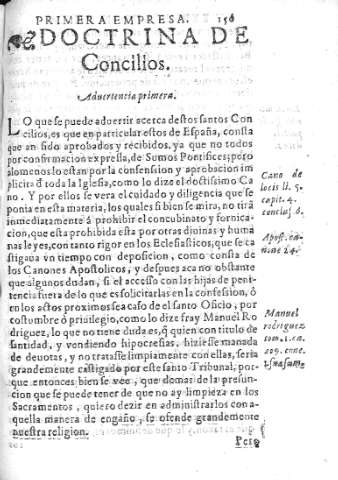 PRIMERA EMPRESA. 156
DOCTRINA DE
Concilios.
Aduertencia primera.
LO que se puede aduertir acerca destos santos Con
cilios, es que en particular estos de España, consta
que an sido aprobados y recibidos, ya que no todos
por confirmacion expressa, de Somos Pontifices; pero
alomenos lo estan por la consension y aprobacion im
plicita d̃ toda la Iglesia, como lo dize el doctissimo Ca
no. Y por ellos se vera el cuidado y diligencia que se
ponia en esta materia, los quales si bien se mira, no tirã
inmediatamente â prohibir el concubinato y fornica
cion, que esta prohibida esta por otras diuinas y huma
nas leyes, con tanto rigor en los Eclesiasticos, que se ca
stigaua vn tiempo con deposicion, como consta de
los Canones Apostolicos, y despues aca no obstante
que algunos dudan, si el accesso con las hijas de peni-
tencia fuera de lo que es solicitarlas en la confession, ô
en los actos proximos sea caso de el santo Oficio, por
costumbre ô priuilegio, como lo dize fray Manuel Ro
driguez, lo que no tiene duda es, q̃ quien con titulo de
santidad, y vendiendo hipocresias. hiziesse manada
de deuotas, y no tratasse limpiamente con ellas, seria
grandemente castigado por este santo Tribunal, por-
que entonces bien se vee, que demas de la presun-
cion que se puede tener de que no ay limpieza en los
Sacramentos, quiero dezir en administrarlos con a-
quella manera de engaño, se ofende grandemente
nuestra religion.
Pero
Cano de
locis li. 5.
capit. 4.
conclus. 6.
Apost. ca-
none 24.
Manuel
rodriguez
tom. 1. ca.
209. conc.